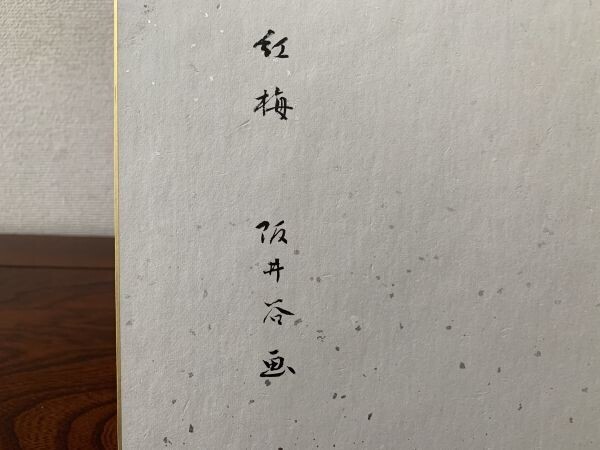 紅梅
阪井谷画